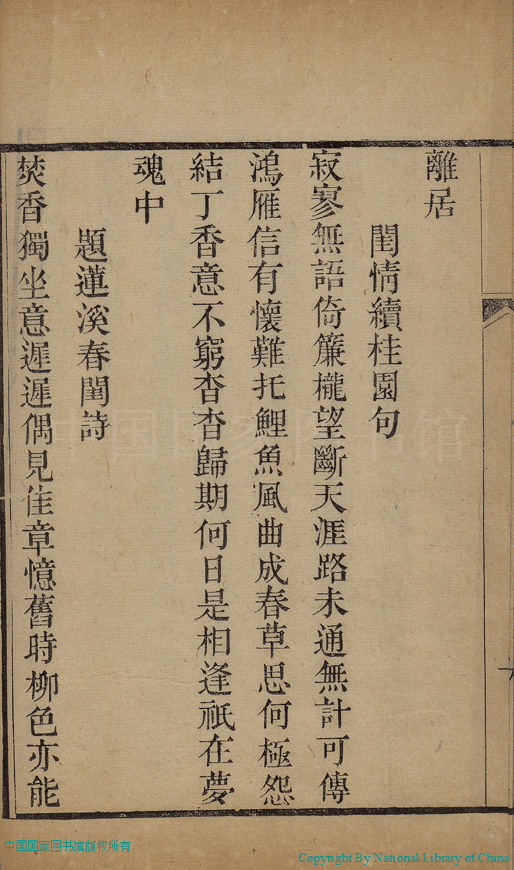 離居
閨情續桂園句
寂寥無語倚簾櫳望斷天涯路未通無計可傳
鴻雁信有懷難托鯉魚風曲成春草思何極怨
結丁香意不窮杳杳歸期何日是相逢祇在夢
魂中
題蓮溪春閨詩
焚香獨坐意遲遲偶見佳章憶舊時柳色亦能
中国国家图书馆
中国国家图书馆版权所有
Copyright By National Library of China